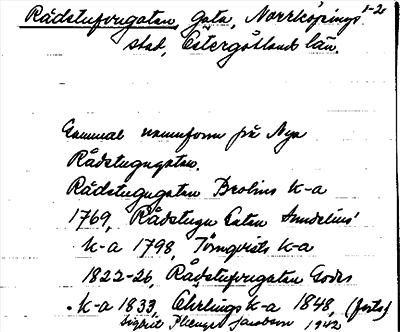 Rådstufvugatan, gata, Norrköpings 1-2
stad, Östergötlands län.
Gammal namnform på Nya
Rådstugugatan.
Rådstugugatan Brolins k-a
1769, Rådstugu Gatan Sundelius'
k-a 1798, Törnqvists k-a
1822-26, Rådstufvugatan Godes
k-a 1833, Ehrlings k-a 1848, (forts)
Jansson 1942